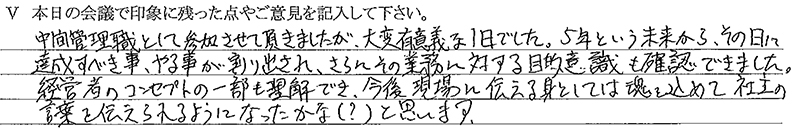 V 本日の会議で印象に残った点やご意見を記入して下さい。
中間管理職として参加させて頂きましたが、大変有意義な1日でした。5年という未来から、その日に
達成すべき事、やる事が割り出され、さらにその業務に対する目的意識も確認できました。
経営者のコンセプトの一部も理解でき、今後現場に伝える身としては魂を込めて社立の
言葉を伝えられるようになったかな(?)と思います。